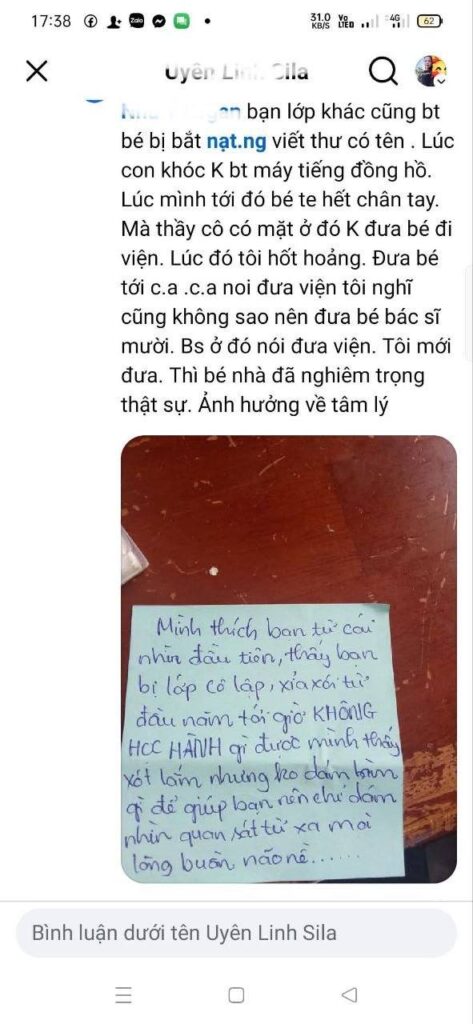 17:38
31.0 KB/S
Vo LTED
4G
62
Zalo
Uyên Linh Sila
bạn lớp khác cũng bt
bé bị bắt nạt.ng viết thư có tên . Lúc
con khóc K bt máy tiếng đồng hồ.
Lúc mình tới đó bé te hết chân tay.
Mà thầy cô có mặt ở đó K đưa bé đi
viện. Lúc đó tôi hốt hoảng. Đưa bé
tới c.a .c.a noi đưa viện tôi nghĩ
cũng không sao nên đưa bé bác sĩ
mười. Bs ở đó nói đưa viện. Tôi mới
đưa. Thì bé nhà đã nghiêm trọng
thật sự. Ảnh hưởng về tâm lý
Mình thích bạn từ cái
nhìn đầu tiên, thấy bạn
bị lớp cô lập, xỉa xói từ
đầu năm tới giờ KHÔNG
HCC HÀNH gì được mình thấy
xót lắm nhưng ko dám làm
gì để giúp bạn nên chỉ dám
nhìn quan sát từ xa mà
lòng buồn não nề......
Bình luận dưới tên Uyên Linh Sila